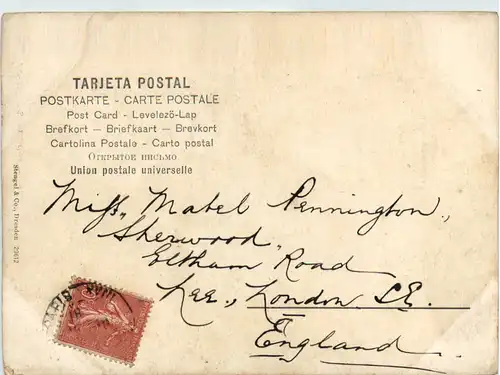 TARJETA POSTAL
POSTKARTE - CARTE POSTALE
Post Card - Levelező-Lap
Brefkort — Briefkaart — Brevkort
Cartolina Postale - Carto postal
Открытое письмо
Union postale universelle
Stengel & Co., Dresden
Miss, Mabel Pennington,
Sherwood,
Eltham Road
Lee, London S.E.
England.
PARIS XVIII